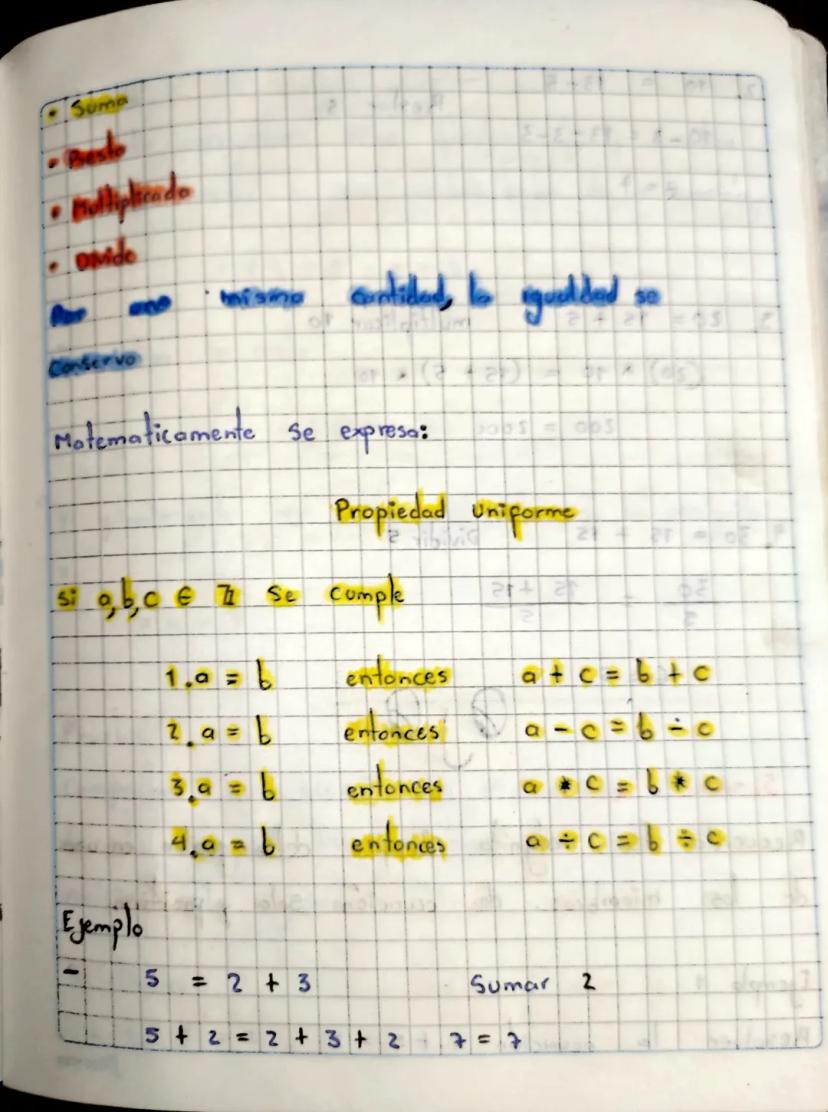 • Suma
• Resto
• Multiplicado
• Divido
Por una misma cantidad, la igualdad se
conserva
Matematicamente se expresa:
Propiedad Uniforme
Si a,b,c ∈ ℤ se cumple
1. a = b entonces a + c = b + c
2. a = b entonces a - c = b ÷ c
3. a = b entonces a * c = b * c
4. a = b entonces a ÷ c = b ÷ c
Ejemplo
- 5 = 2 + 3 Sumar 2
5 + 2 = 2 + 3 + 2 7 = 7